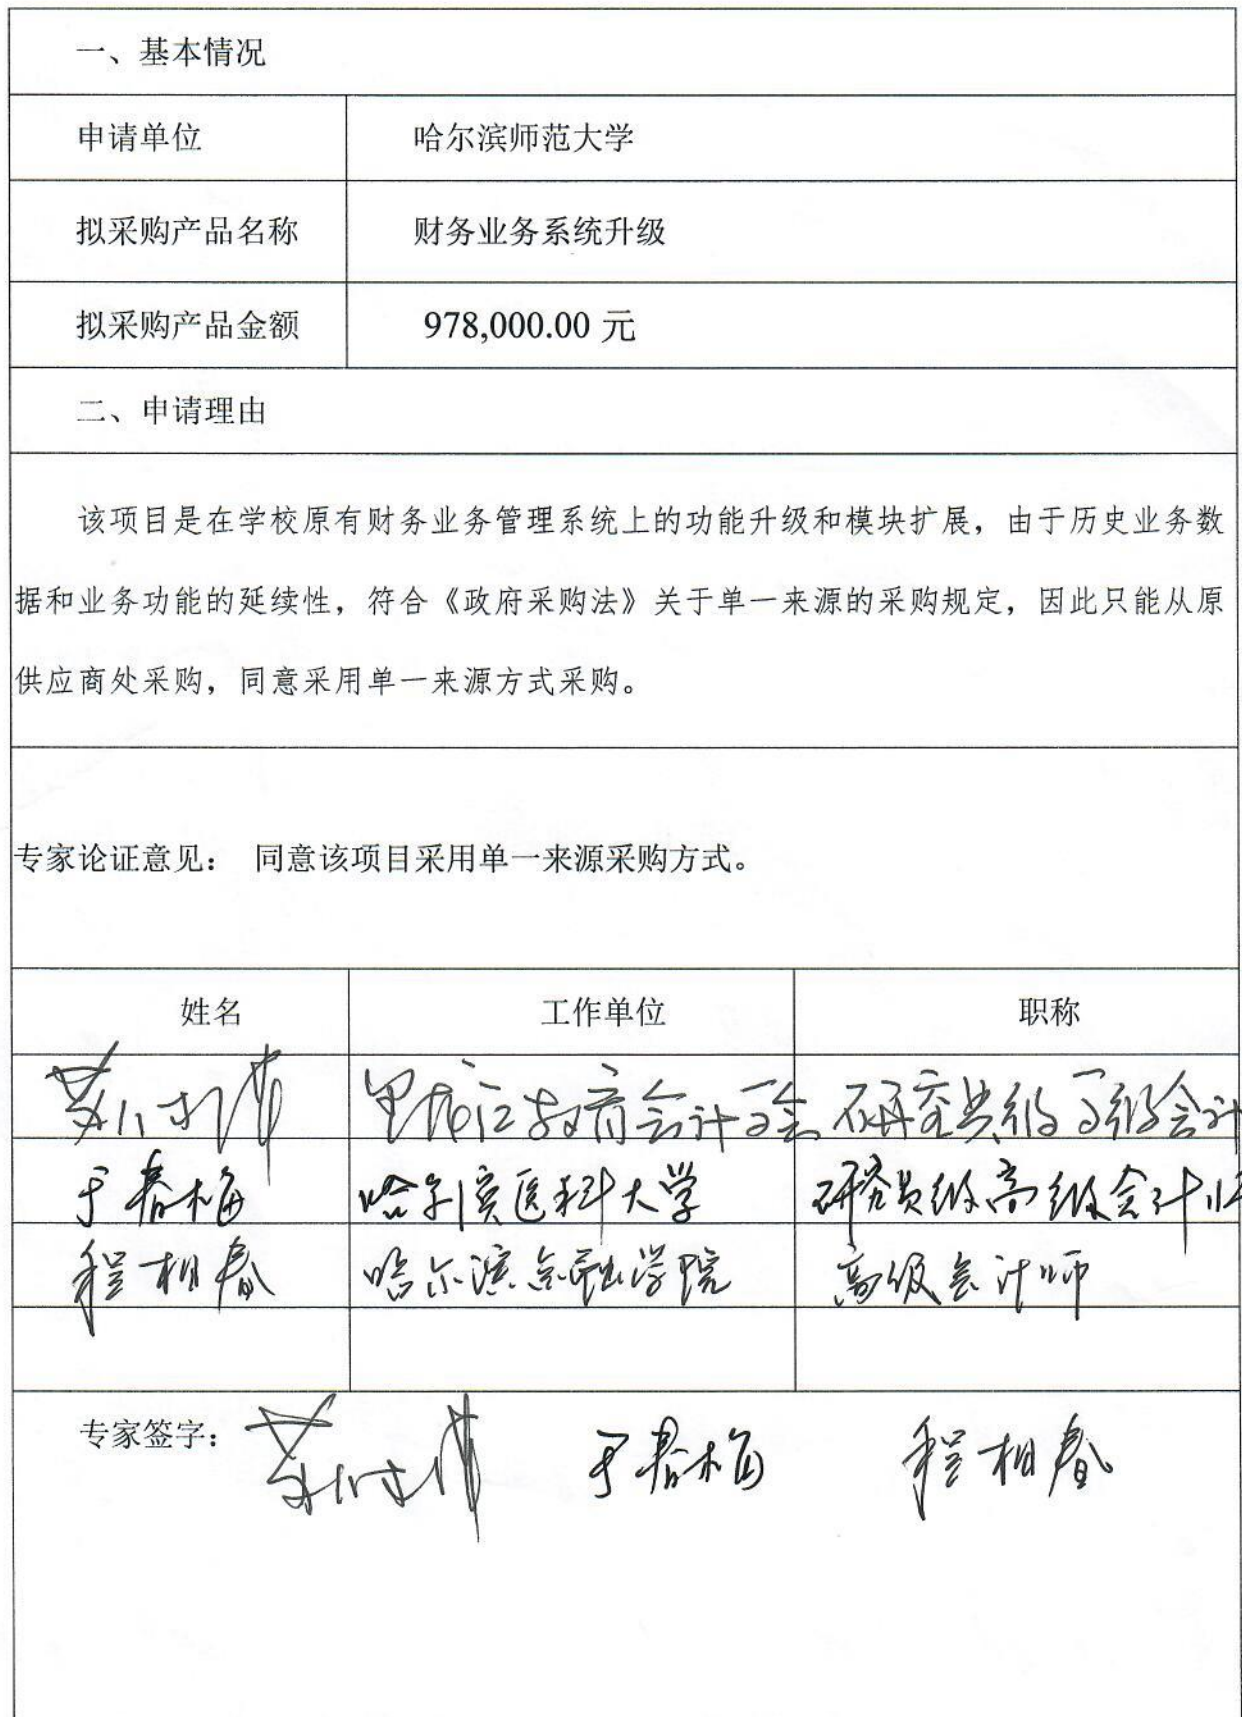 一、基本情况
申请单位 哈尔滨师范大学
拟采购产品名称 财务业务系统升级
拟采购产品金额 978,000.00 元
二、申请理由
该项目是在学校原有财务业务管理系统上的功能升级和模块扩展，由于历史业务数
据和业务功能的延续性，符合《政府采购法》关于单一来源的采购规定，因此只能从原
供应商处采购，同意采用单一来源方式采购。
专家论证意见： 同意该项目采用单一来源采购方式。
姓名 工作单位 职称
教育会计学会 研究员级高级会计
于春梅 哈尔滨医科大学 研究员级高级会计师
程相春 哈尔滨金融学院 高级会计师
专家签字： 于春梅 程相春